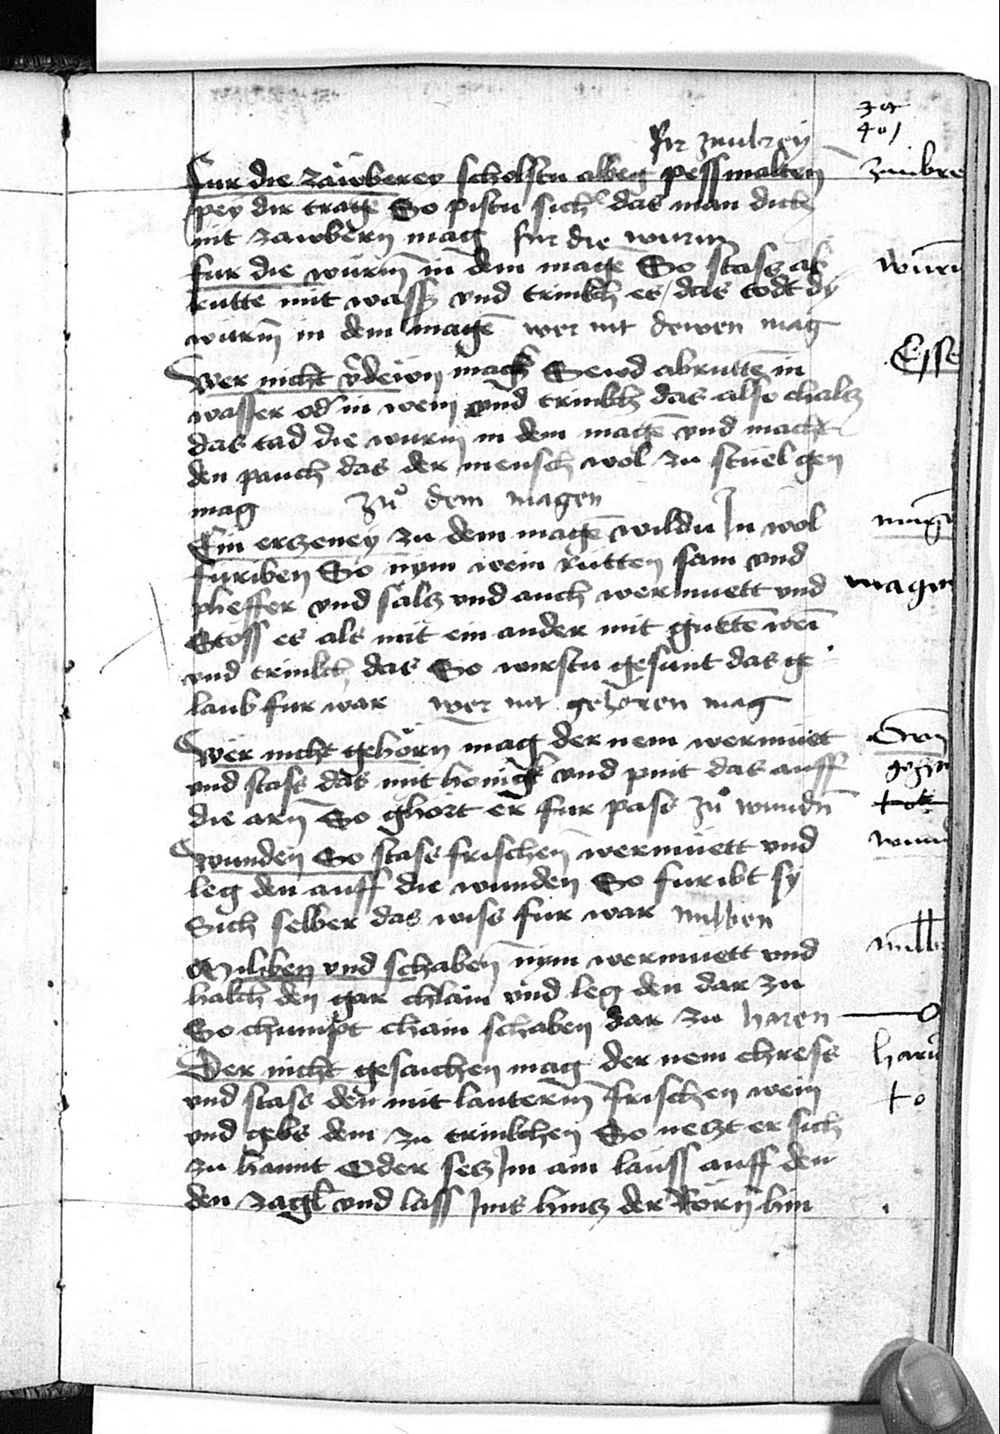 39
401
Fur zaubrey
Fur die zawberey scholstu albeg pessmalten zaubre
pey dir trage So pistu sich das man dich
nit zawbern mag fur die wurm
fur die würm in dem mage So stass ab wurm
rutte mit wass und trinkch es das todt dy
würm in dem magē wer nit dewen mag
Wer nicht v̄dewn mag Sewd abrutte in Esse
wasser od in wein und trinkch das also chalcz
das tad die wurm in dem magē und macht
den pauch das der mensch wol zu stuel gen
mag Zů dem magen
Ein erczeney zu dem magē wildu In wol
furiben So nym wein rutten sam und magen
pheffer und salcz und auch wermuett und
Stoss es als mit ein ander mit guttē wei
und trinkch das So wirstu gesunt das ge
laub fur war wer nit gehoren mag
Wer nicht gehörn mag der nem wermuet Orn
und stass das mit honigk und pint das auff
die arn So ghort er fur pass zů wundn̄
Wunden So stass frischen wermuett und wund
leg den auff die wunden So furibt sy
Sich selber das wiss fur war milben
Miliben und schaben nym wermuett und milb
halch den gar chlain und leg den dar zu
So chumpt chain schaben dar zu haren
Der nicht gesaichen mag der nem chress harn
und stass den mit lauterm frischen wein to
und gebs dem zu trinkchen So neczt er sich
zu hannt Oder secz Im ain lauss auff den
den zagl und lass Ims hincz der Rörn hin